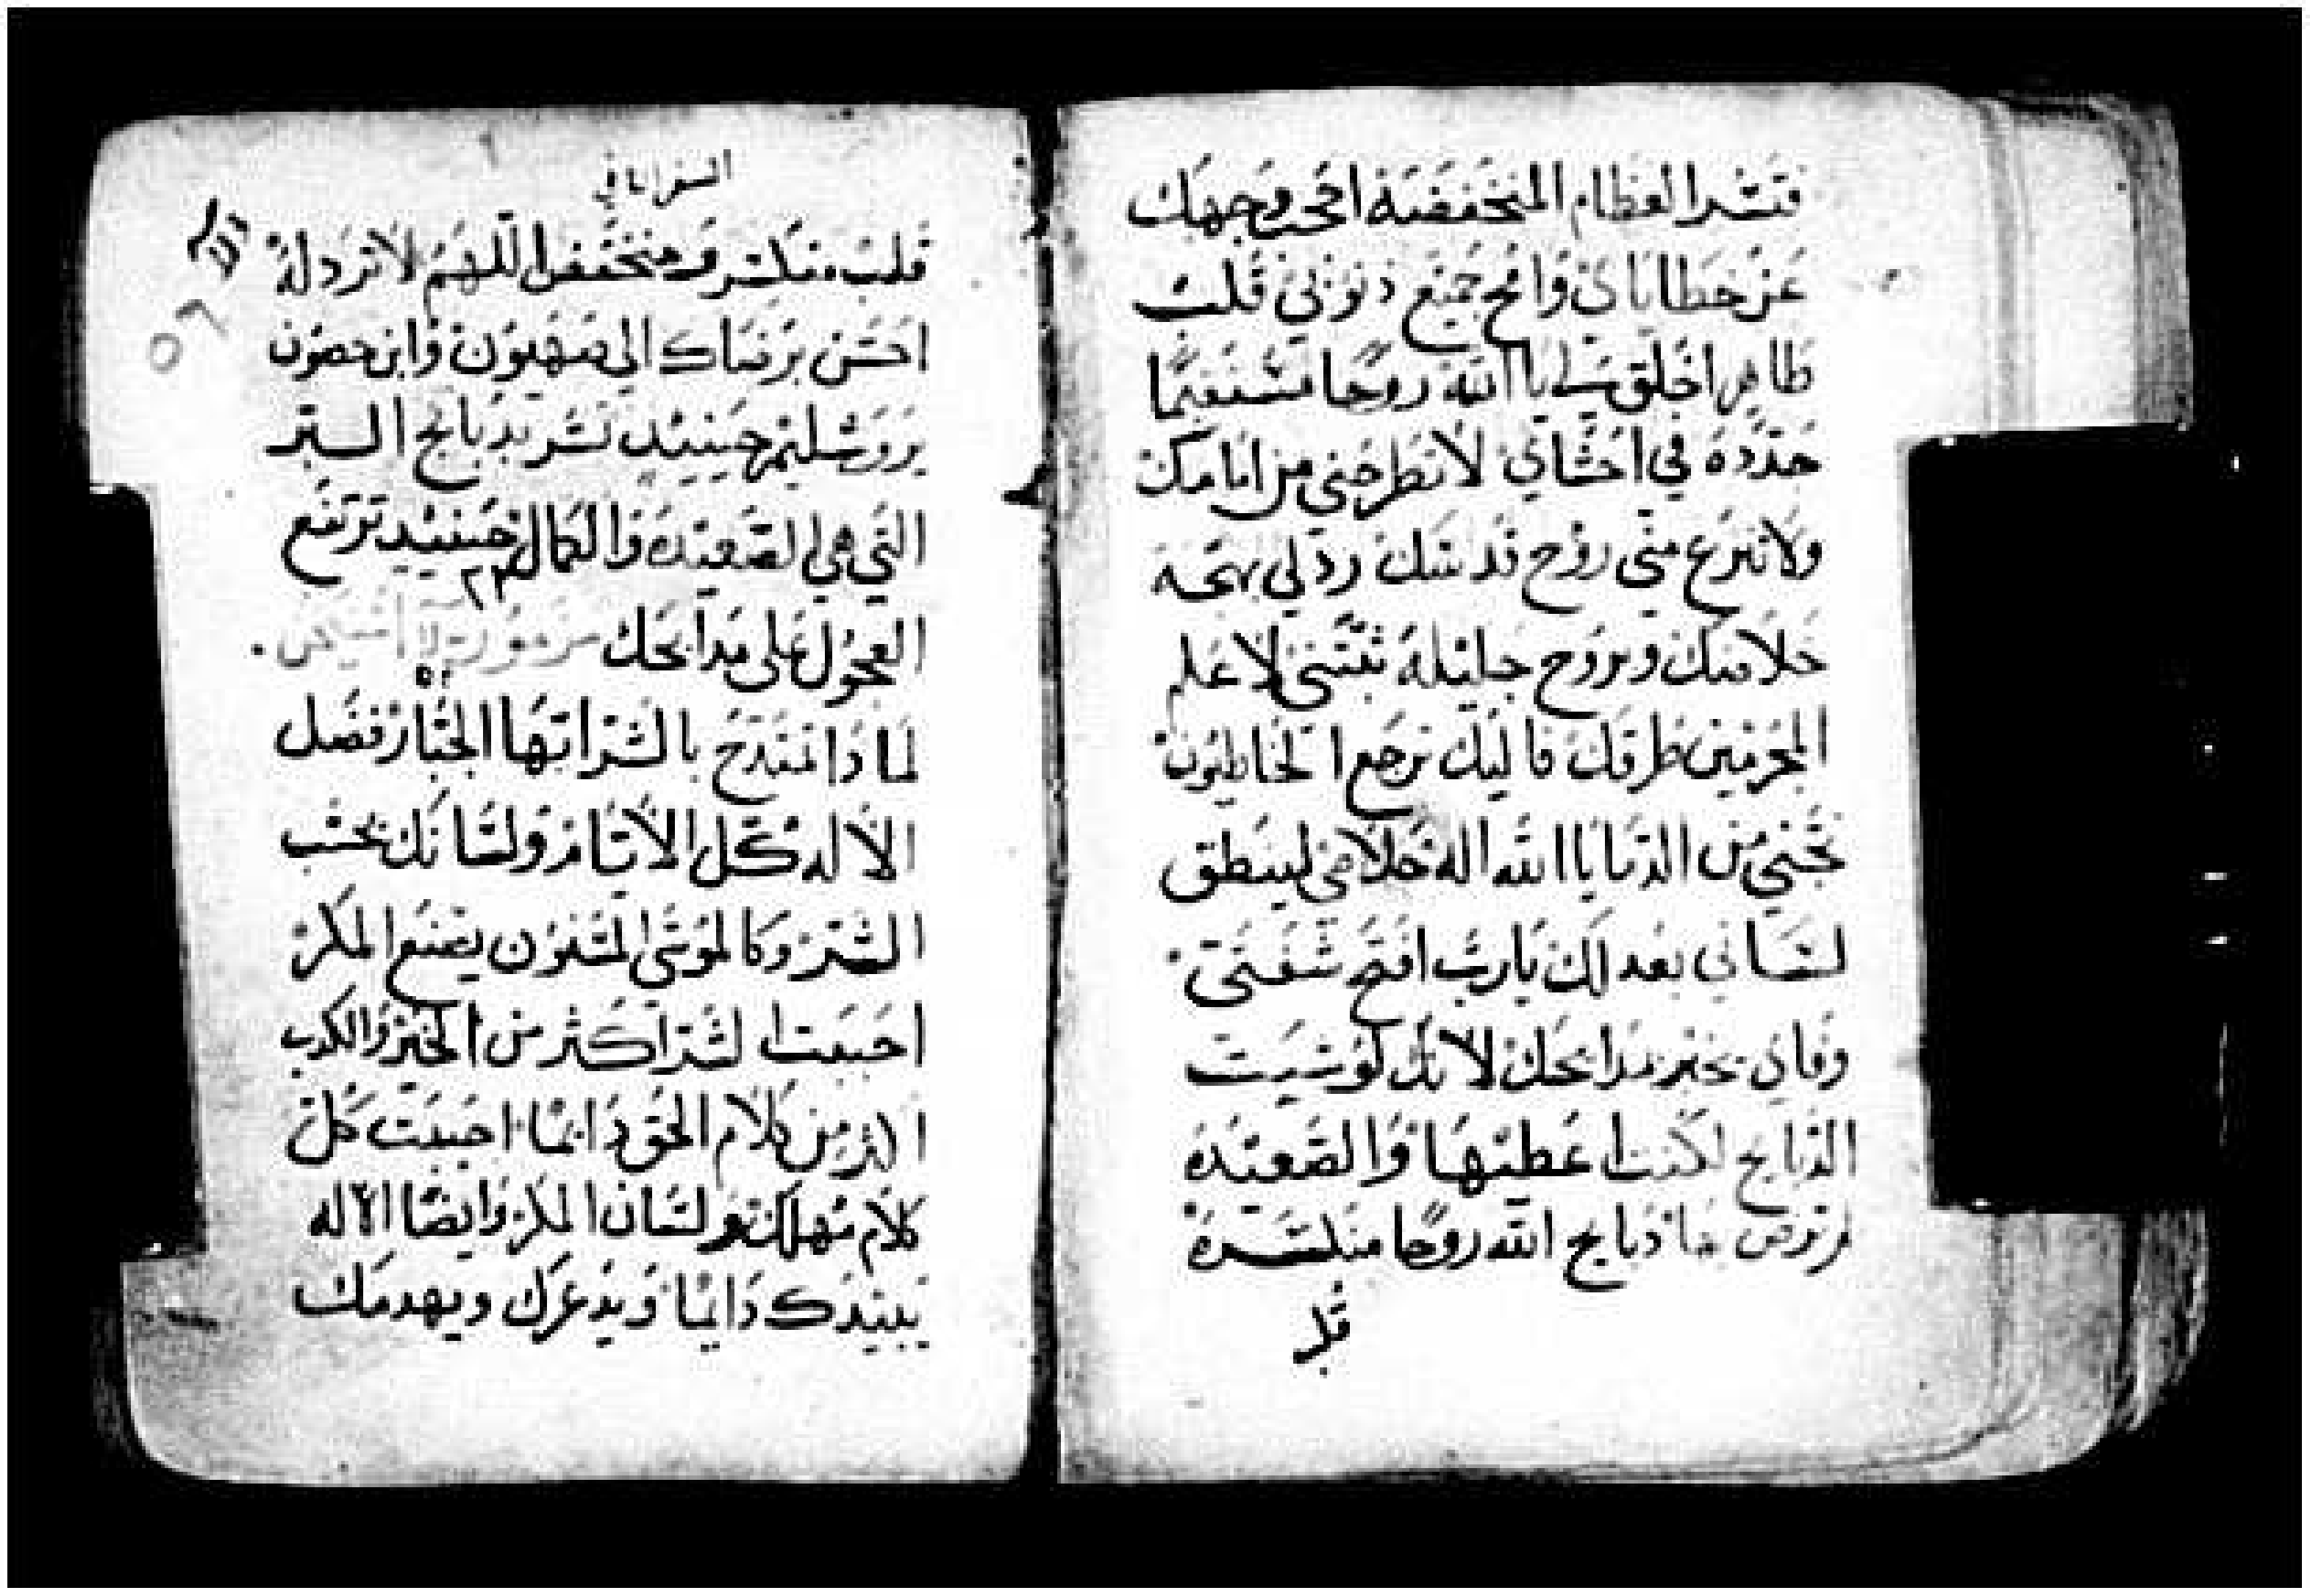 فتسر العظام المنخفضة احجب وجهك
عن خطاياي وامح جميع ذنوبي قلب
طاهر اخلق في يا الله روحا مستقيما
جدده في احشاي لا تطرحني من امامك
ولا تنزع مني روح قدسك رد لي بهجة
خلاصك وبروح جليلة ثبتني لاعلم
المجرمين طرقك فاليك ترجع الخاطيون
نجني من الدما يا الله اله خلاصي لينطق
لساني بعدلك يا رب افتح شفتي
وفاي يخبر مدايحك لانك لو شيت
الذبايح لكنت اعطيتها والصعيدة
لم ترض بها ذبايح الله روحا منكسرة
قلب
السفر الثاني
قلب منكسر ومنخفض اللهم لا ترذله
احسن برضاك الي صهيون وابن حصون
يروشليم حينيد تسر بدبايح البر
التي هي الصعيدة والكمال حينيد ترتفع
العجول علي مدابحك
لماذا تمتدح بالشر ايها الجبار فضل
الاله كل الايام ولسانك يحسب
الشر وكالموسى المسنون يصنع المكر
احببت الشر اكثر من الخير والكدب
اكثر من كلام الحق دايما احببت كل
كلام مهلك ولسان المكر وايضا الاله
يبيدك دايما ويذعرك ويهدمك